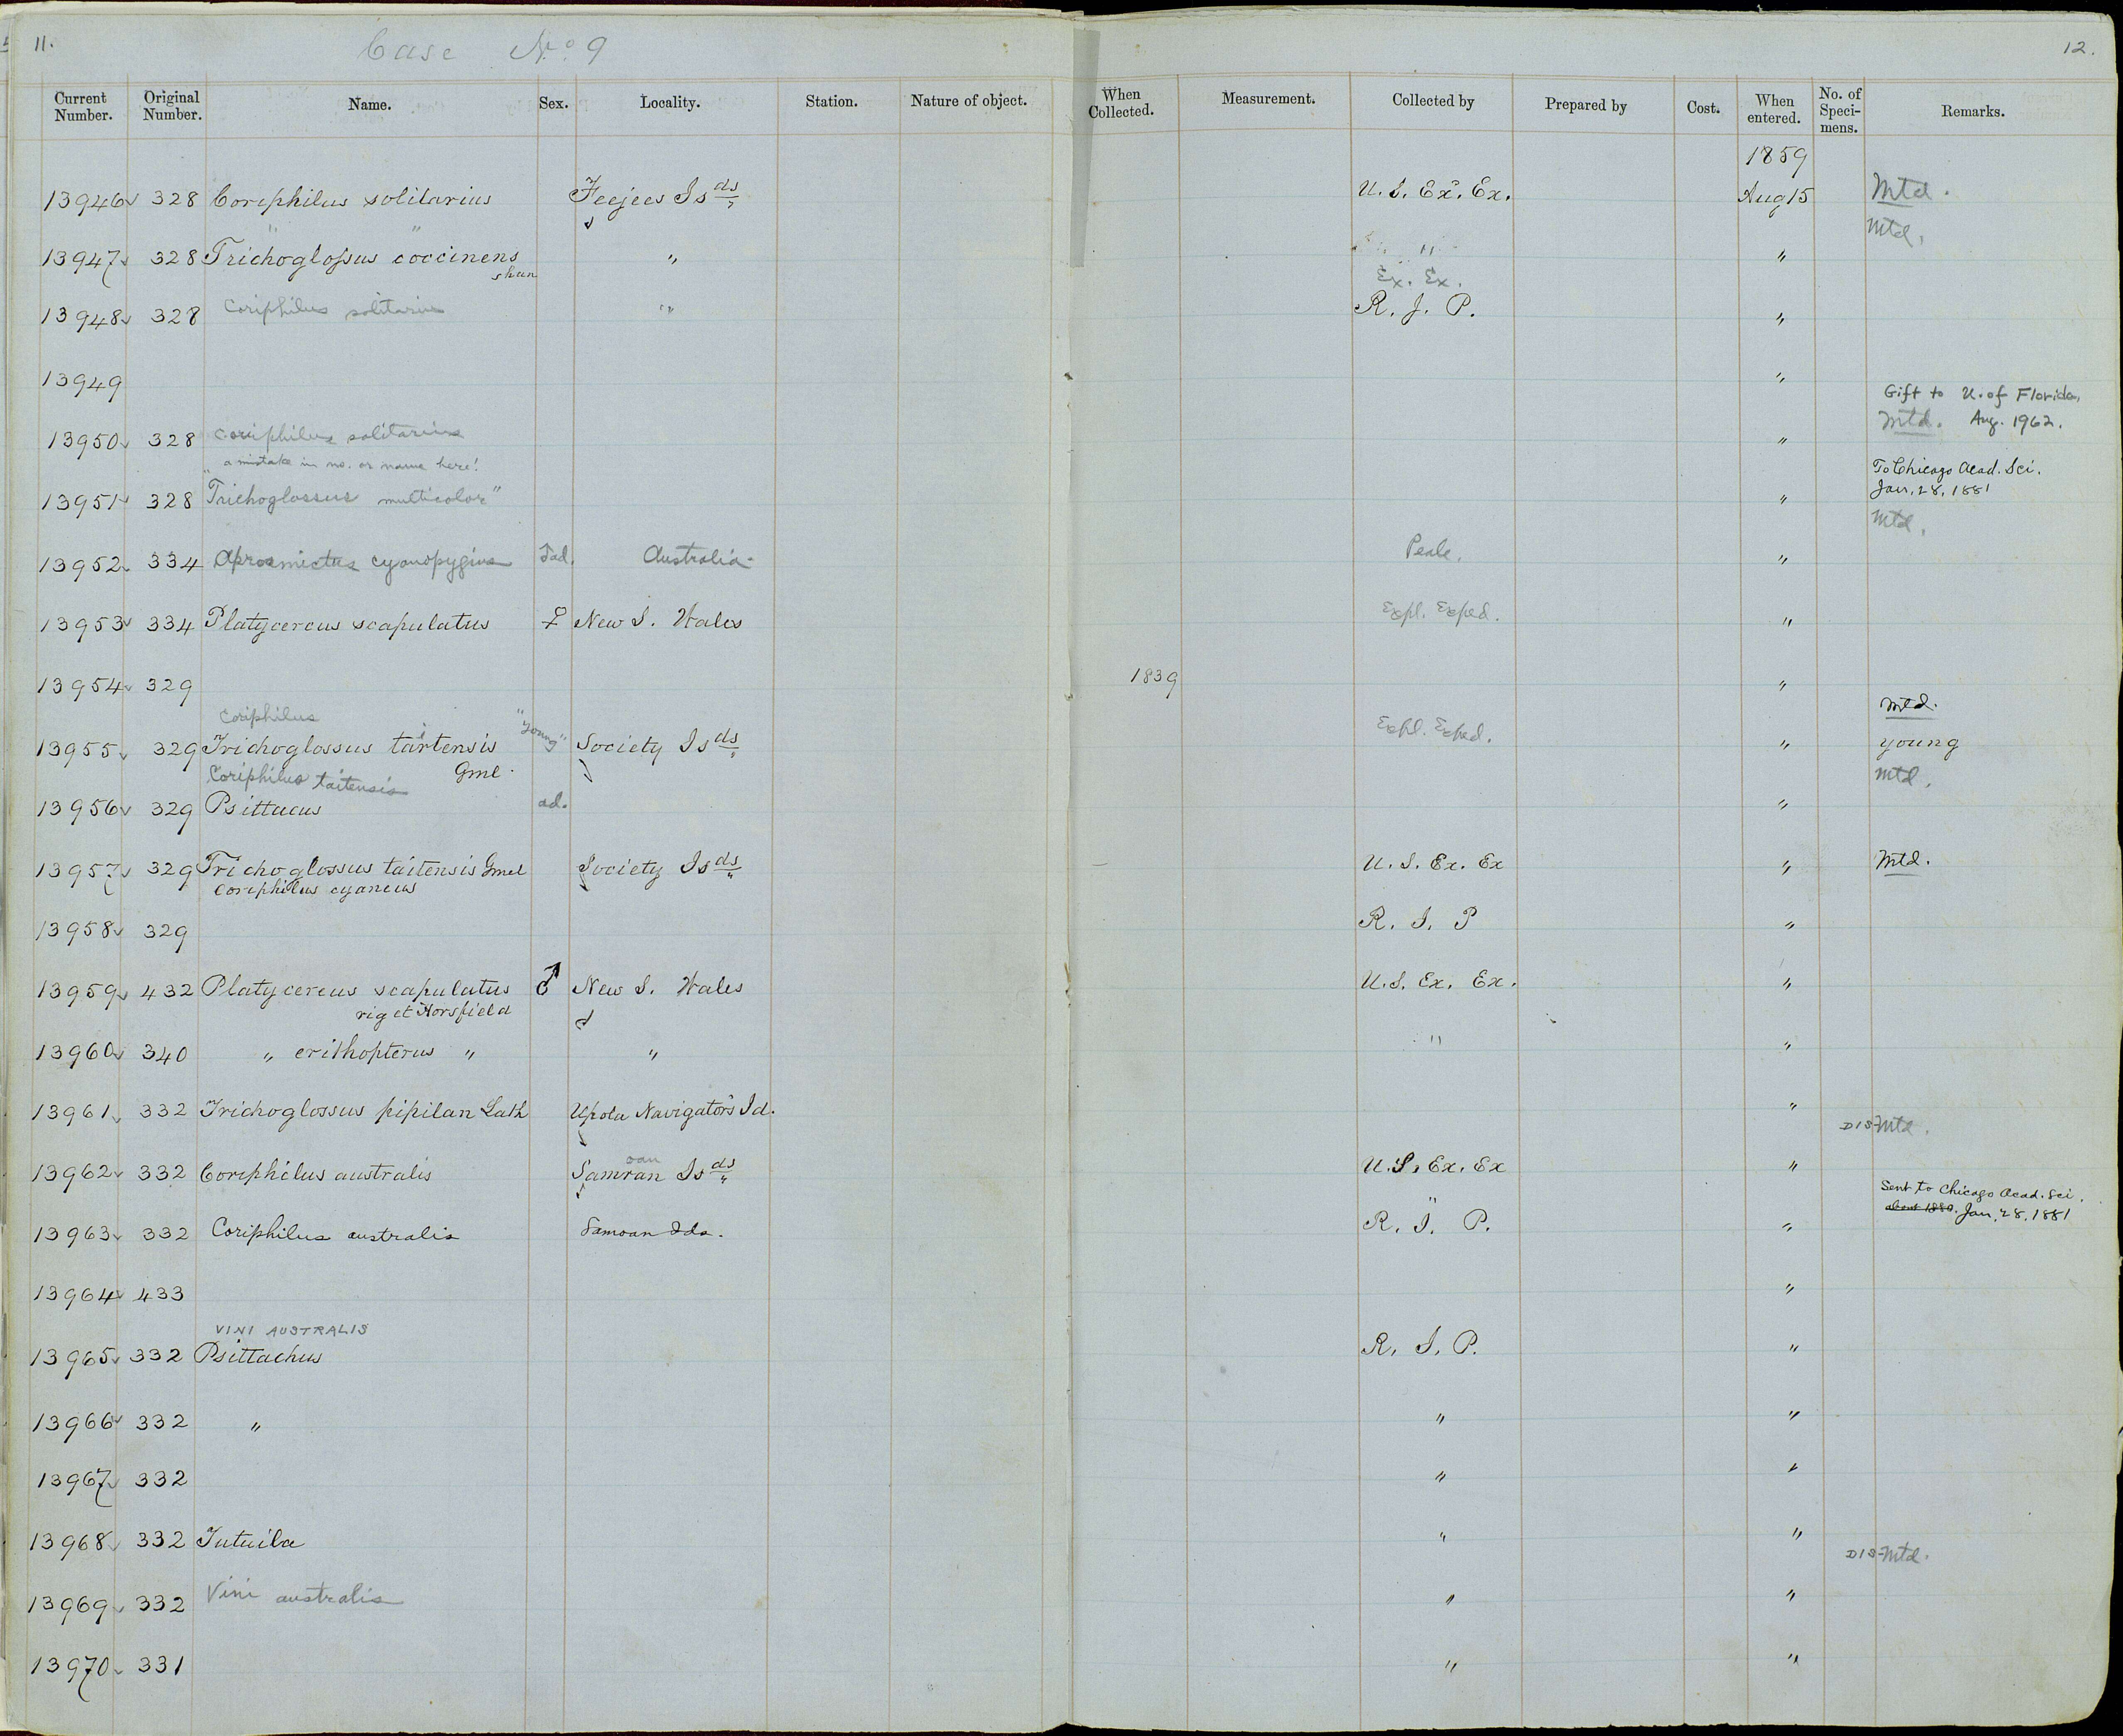 11. Case No. 9 12.
Current Number. Original Number. Name. Sex. Locality. Station. Nature of object. When Collected. Measurement. Collected by Prepared by Cost. When entered. No. of Specimens. Remarks.
1859
13946 328 Coriphilus solitarius Feejees Isds U. S. Ex. Ex. Aug 15 Mtd.
" " Mtd.
13947 328 Trichoglossus coccinens " " "
shan Ex. Ex.
13948 328 Coriphilus solitarius " R. J. P. "
13949 "
Gift to U. of Florida,
13950 328 Coriphilus solitarius " Mtd. Aug. 1962.
a mistake in no. or name here! To Chicago Acad. Sci.
13951 328 "Trichoglossus multicolor" " Jan. 28, 1881
Mtd.
13952 334 Aprosmictus cyanopygius ♂ad. Australia Peale. "
13953 334 Platycercus scapulatus ♀ New S. Wales Expl. Exped. "
13954 329 1839 "
Coriphilus "young" Mtd.
13955 329 Trichoglossus taitensis Society Isds Expl. Exped. " young
Gml.
Coriphilus taitensis Mtd.
13956 329 Psittacus ad. "
13957 329 Trichoglossus taitensis Gmel Society Isds U. S. Ex. Ex " Mtd.
Coriphilus cyaneus
13958 329 R. S. P "
13959 432 Platycercus scapulatus ♂ New S. Wales U. S. Ex. Ex. "
rig et Horsfield
13960 340 " erithopterus " " " "
13961 332 Trichoglossus pipilan Lath Upolu Navigators Id. "
DIS-Mtd.
oan
13962 332 Coriphilus australis Samran Isds U. S. Ex. Ex "
Sent to Chicago Acad. Sci.
13963 332 Coriphilus australis Samoan Ids. R. S. P. " about 1880. Jan. 28, 1881
13964 433 "
VINI AUSTRALIS
13965 332 Psittachus R. S. P. "
13966 332 " " "
13967 332 " "
13968 332 Tutuila " "
DIS-Mtd.
13969 332 Vini australis " "
13970 331 " "